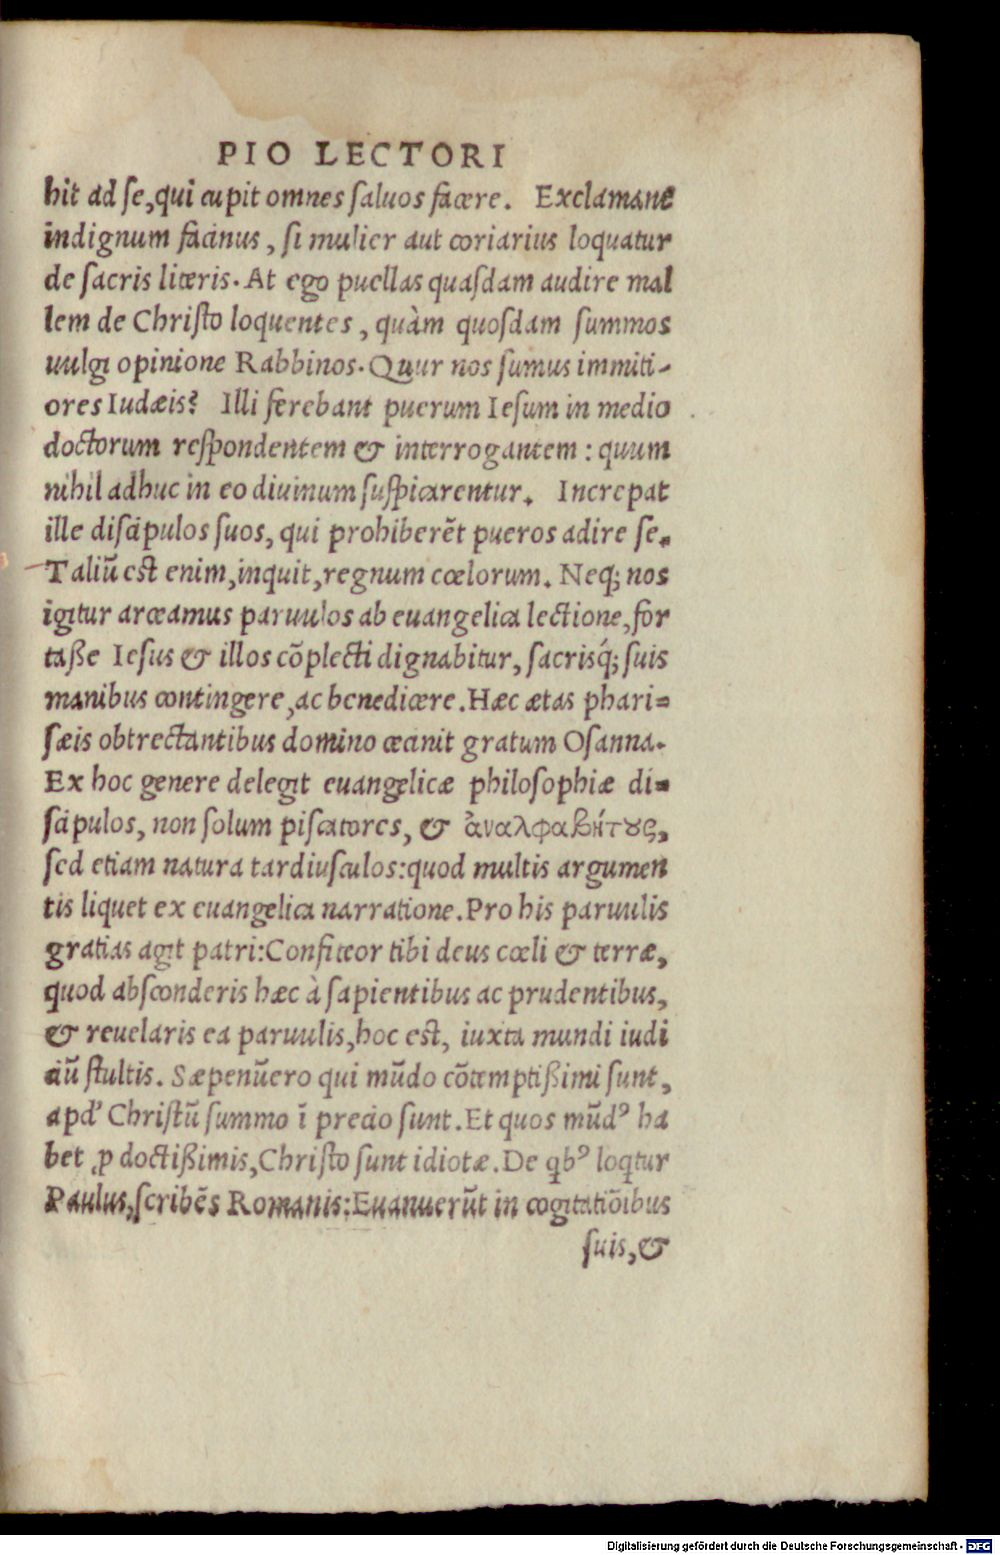 PIO LECTORI
hit ad ſe, qui cupit omnes ſaluos facere. Exclamant
indignum facinus, ſi mulier aut coriarius loquatur
de ſacris literis. At ego puellas quaſdam audire mal
lem de Chriſto loquentes, quàm quoſdam ſummos
uulgi opinione Rabbinos. Quur nos ſumus immiti-
ores Iudæis? Illi ferebant puerum Ieſum in medio
doctorum reſpondentem & interrogantem: quum
nihil adhuc in eo diuinum ſuſpicarentur. Increpat
ille diſcipulos ſuos, qui prohiberēt pueros adire ſe.
Taliū eſt enim, inquit, regnum cœlorum. Neq; nos
igitur arceamus paruulos ab euangelica lectione, for
taße Ieſus & illos cōplecti dignabitur, ſacrisq́; ſuis
manibus contingere, ac benedicere. Hæc ætas phari=
ſæis obtrectantibus domino cecinit gratum Oſanna.
Ex hoc genere delegit euangelicæ philoſophiæ di=
ſcipulos, non ſolum piſcatores, & ἀναλφαβήτȣς,
ſed etiam natura tardiuſculos: quod multis argumen
tis liquet ex euangelica narratione. Pro his paruulis
gratias agit patri: Confiteor tibi deus cœli & terræ,
quod abſconderis hæc à ſapientibus ac prudentibus,
& reuelaris ea paruulis, hoc eſt, iuxta mundi iudi
ciū ſtultis. Sæpenūero qui mūdo cōtemptißimi ſunt,
apd' Chriſtū ſummo ī precio ſunt. Et quos mūdꝰ ha
bet ꝓ doctißimis, Chriſto ſunt idiotæ. De qbꝰ loqtur
Paulus, ſcribēs Romanis: Euanuerūt in cogitatiōibus
ſuis, &
Digitalisierung gefördert durch die Deutsche Forschungsgemeinschaft - DFG